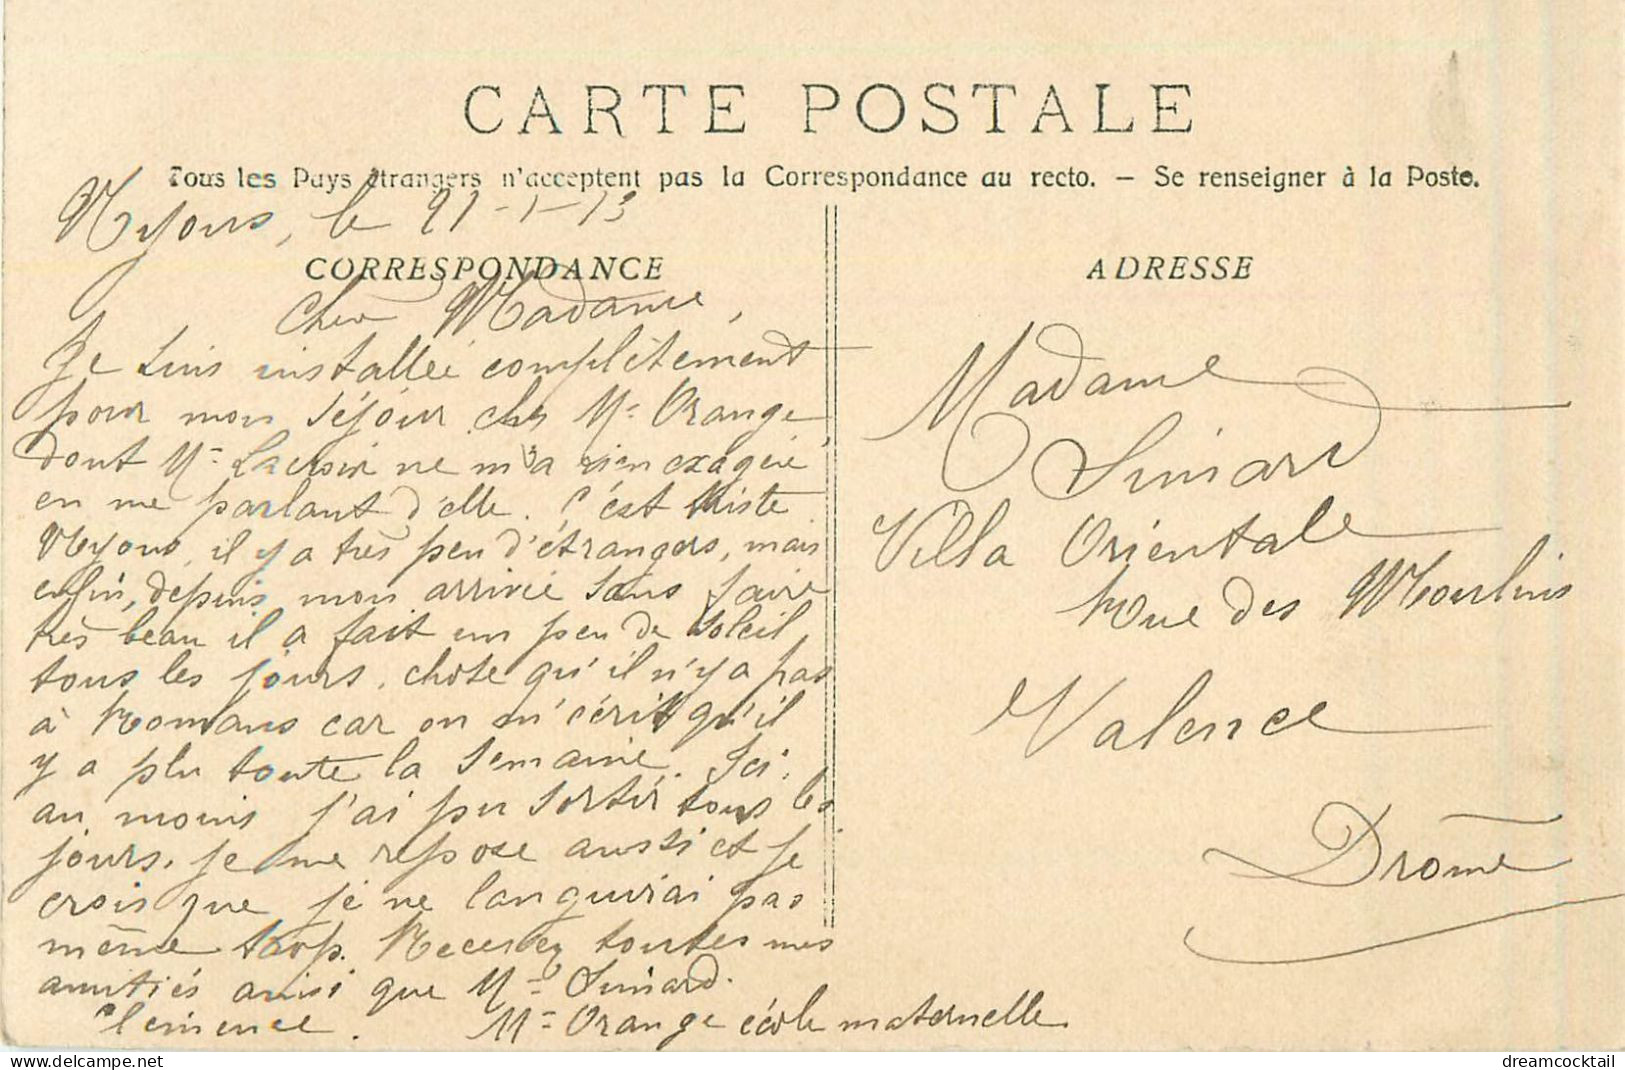 CARTE POSTALE
Tous les Pays étrangers n'acceptent pas la Correspondance au recto. — Se renseigner à la Poste.
Nyons, le 21-1-13
CORRESPONDANCE
Cher Madame,
Je suis installée complètement
pour mon séjour chez Me Orange
dont Me Lacroix ne m'a rien exagéré
en me parlant d'elle. C'est triste
Nyons, il y a très peu d'étrangers, mais
enfin, depuis mon arrivée sans faire
très beau il a fait un peu de soleil
tous les jours, chose qu'il n'y a pas
à Romans car on m'écrit qu'il
y a plu toute la semaine. Ici,
au moins j'ai pu sortir tous les
jours, je me repose aussi et je
crois que je ne languirai pas
même trop. Recevez toutes mes
amitiés ainsi que Mr Simard.
Clemence. Me Orange école maternelle
ADRESSE
Madame
Simard
Villa Orientale
Rue des Moulins
Valence
Drôme
dreamcocktail